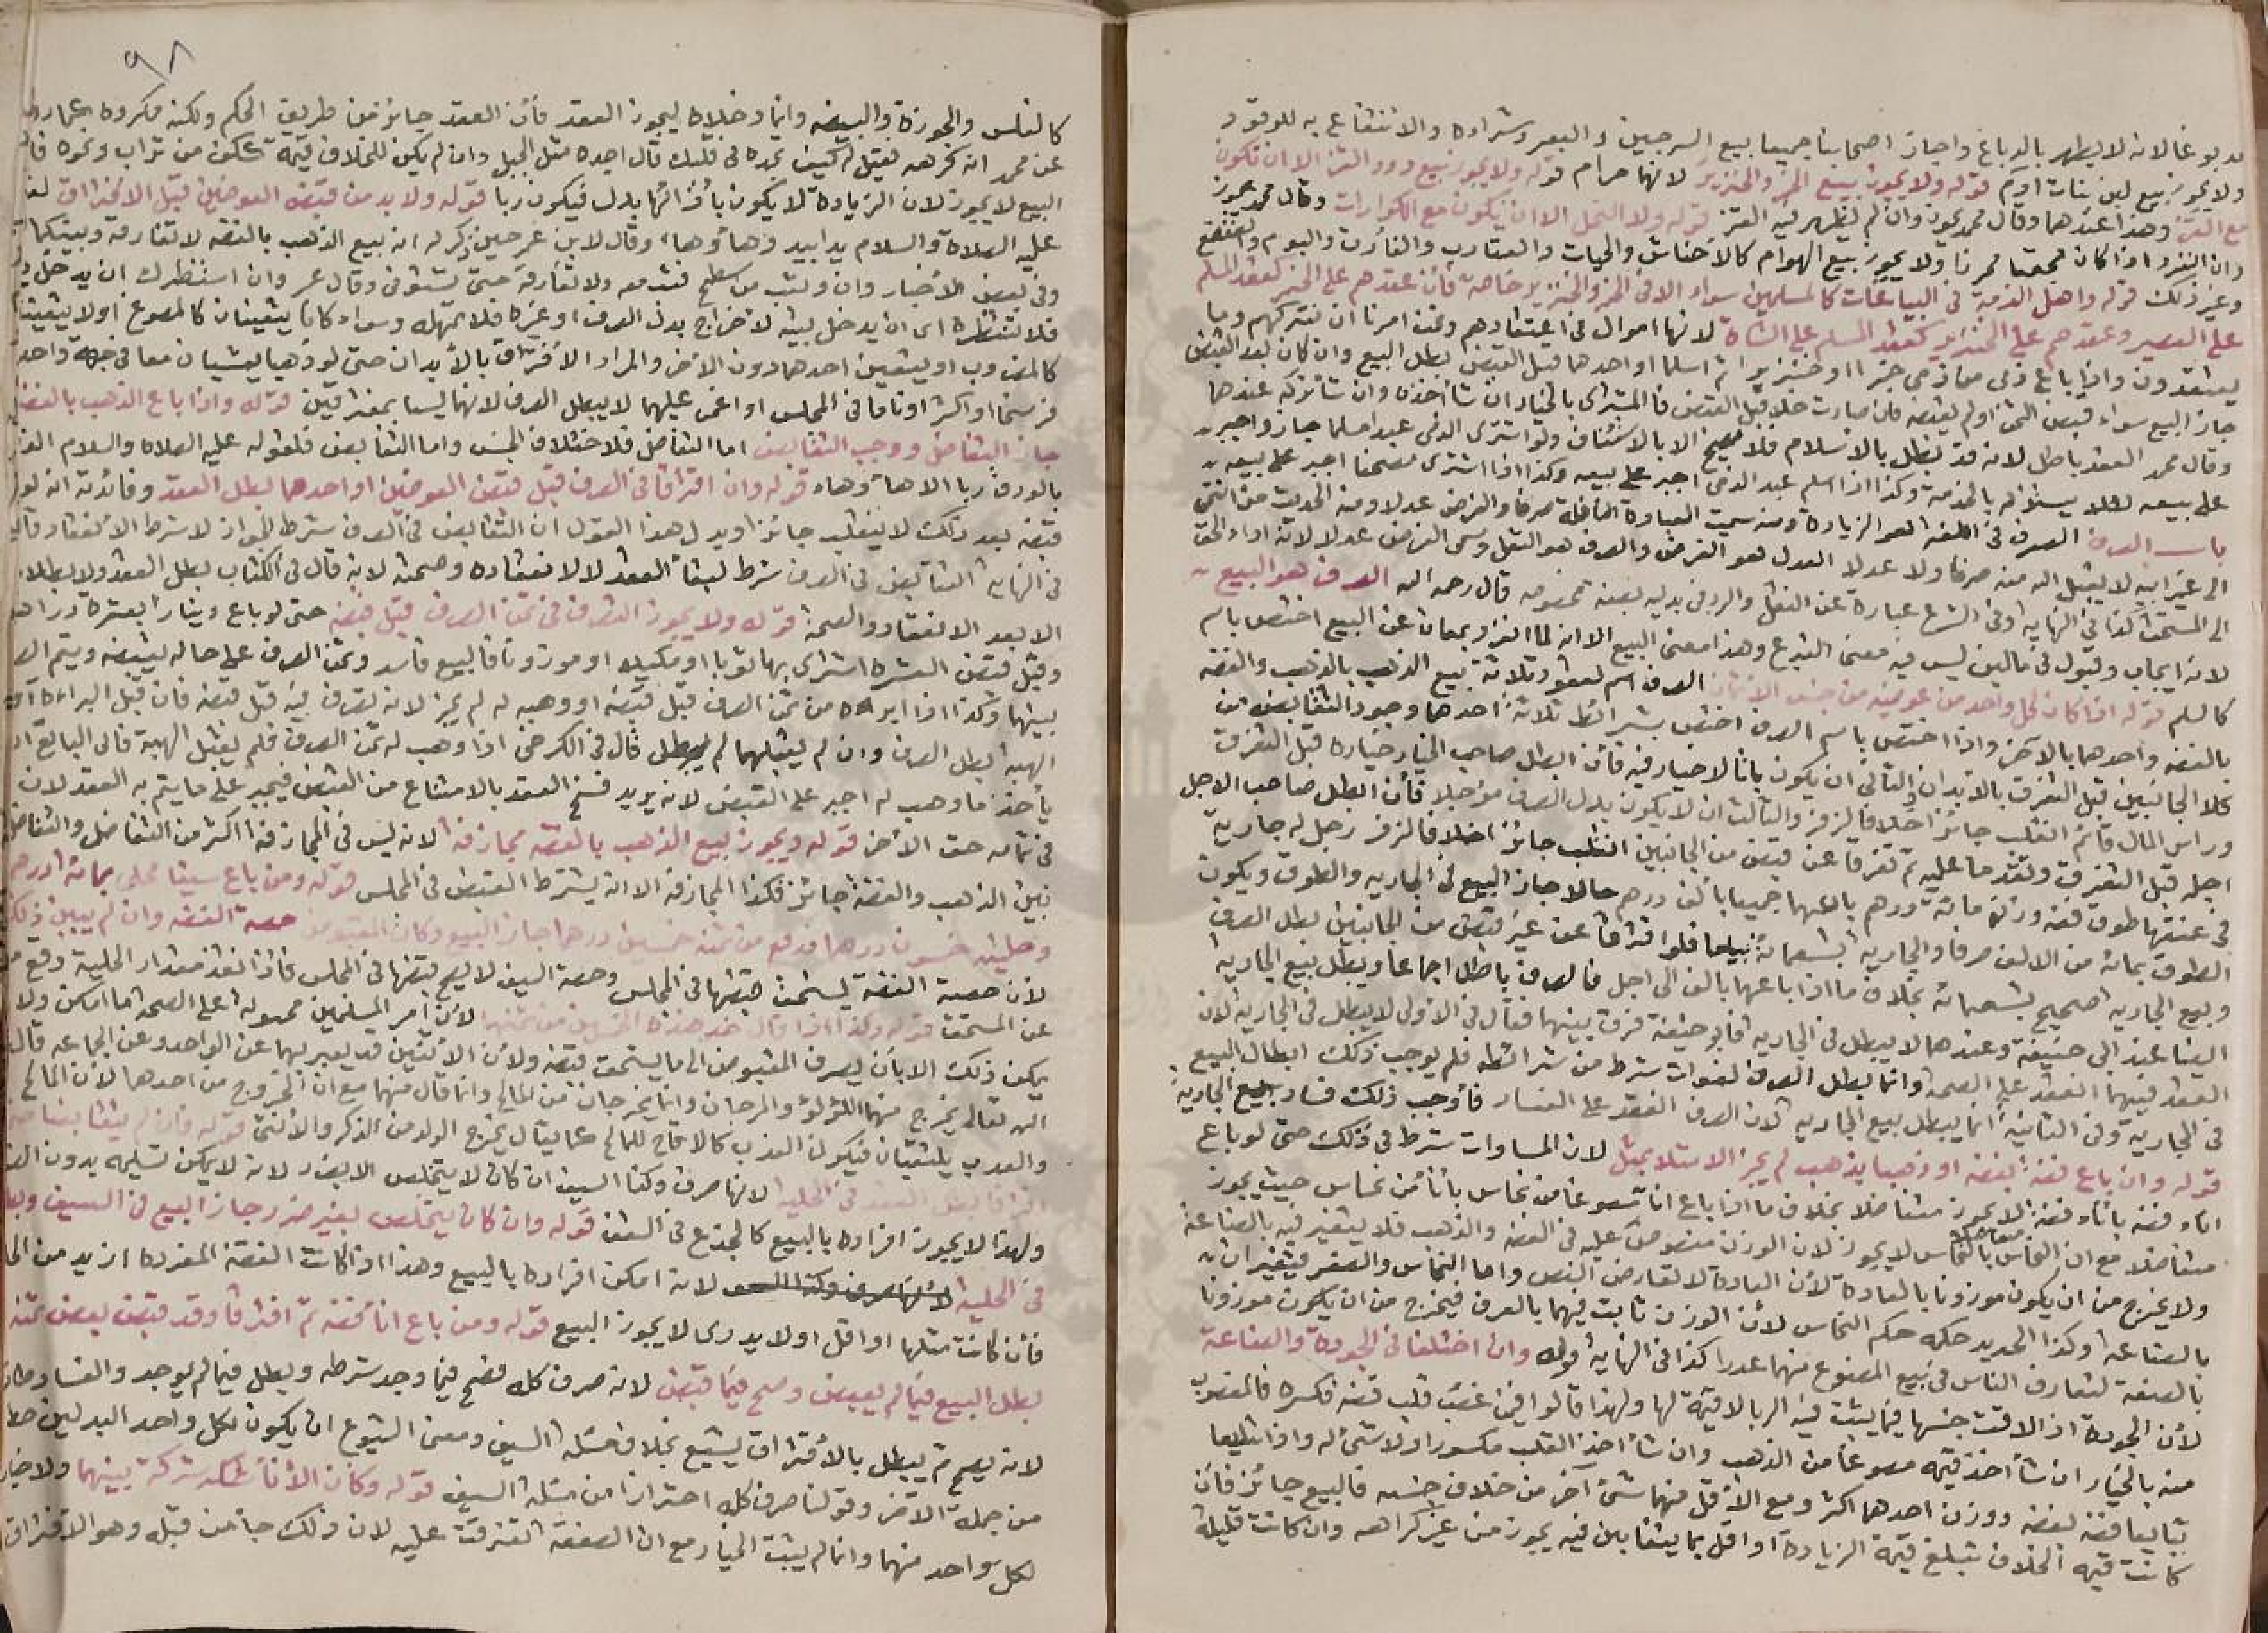 مدبوغا لانه لا يطهر بالدباغ واجاز اصحابنا جميعا بيع السرجين والبعر وشراءه والانتفاع به للوقود
ولا يجوز بيع لبن بنات آدم قوله ولا يجوز بيع الخمر والخنزير لانهما حرام قوله ولا يجوز بيع دود القز الا ان تكون
مع القز وهذا عندهما وقال محمد يجوز وان لم يظهر فيه القز قوله ولا النحل الا ان يكون مع الكوارات وقال محمد يجوز
وان انفرد اذا كان مجمعا محرزا ولا يجوز بيع الهوام كالاحناش والحيات والعقارب والفأرة والبوم والضفدع
وغير ذلك قوله واهل الذمة في البياعات كالمسلمين سواء الا في الخمر والخنزير خاصة فأن عقدهم على الخمر كعقد المسلم
على العصير وعقدهم على الخنزير كعقد المسلم على الشاة لانها اموال في اعتقادهم ونحن امرنا ان نتركهم وما
يعتقدون واذا باع ذمي من ذمي خمرا او خنزيرا ثم اسلما او احدهما قبل القبض بطل البيع وان كان بعد القبض
جاز البيع سواء قبض الثمن او لم يقبضه فان صارت خلا قبل القبض فالمشتري بالخيار ان شأ اخذه وان شأ تركه عندهما
وقال محمد العقد باطل لانه قد بطل بالاسلام فلا يصح الا بالاستئناف ولو اشترى الذمي عبدا مسلما جاز واجبر
على بيعه لئلا يستذله بالخدمة وكذا اذا اسلم عبد الذمي اجبر على بيعه وكذا اذا اشترى مصحفا اجبر على بيعه
باب الصرف الصرف في اللغة هو الزيادة ومنه سميت العبادة النافلة صرفا والفرض عدلا ومنه الحديث من انتمى
الى غير ابيه لا يقبل الله منه صرفا ولا عدلا العدل هو الفرض والصرف هو النفل وسمي الفرض عدلا لانه اداء الحق
الى المستحق كذا في النهاية وفي الشرع عبارة عن النقل والرد في بدليه بصفة مخصوصه قال رحمه الله الصرف هو البيع
لانه ايجاب وقبول في مالين ليس فيه معنى التبرع وهذا معنى البيع الا انه لما انفرد بمعان عن البيع اختص باسم
كالسلم قوله اذا كان كل واحد من عوضيه من جنس الاثمان الصرف اسم لعقود ثلاثة بيع الذهب بالذهب والفضه
بالفضه واحدهما بالآخر واذا اختص باسم الصرف اختص بشرائط ثلاثة احدها وجود التقابض من
كلا الجانبين قبل التفرق بالابدان والثاني ان يكون باتا لا خيار فيه فأن ابطل صاحب الخيار خياره قبل التفرق
وراس المال قائم انقلب جائزا خلافا لزفر والثالث ان لا يكون بدل الصرف مؤجلا فأن ابطل صاحب الاجل
اجله قبل التفرق ونقد ما عليه ثم تفرقا عن قبض من الجانبين انقلب جائزا خلافا لزفر رجل له جارية
في عنقها طوق فضه وزنه مائة درهم باعهما جميعا بألف درهم حالا جاز البيع في الجارية والطوق ويكون
الطوق بمائة من الالف صرفا والجاريه بتسعمائة بيعا فلو افترقا عن غير قبض من الجانبين بطل الصرف
وبيع الجاريه صحيح بتسعمائة بخلاف ما اذا باعهما بالف الى اجل فالصرف باطل اجماعا ويبطل بيع الجاريه
ايضا عند ابي حنيفة وعندهما لا يبطل في الجاريه فأبو حنيفة فرق بينهما فقال في الاولى لا يبطل في الجاريه لان
العقد فيهما انعقد على الصحة وانما بطل الصرف لفوات شرط من شرائطه فلم يوجب ذلك ابطال البيع
في الجارية وفي الثانية انما يبطل بيع الجاريه لان الصرف انعقد على الفساد فأوجب ذلك فساد بيع الجارية
قوله وان باع فضة بفضه او ذهبا بذهب لم يجز الا مثلا بمثل لان المساوات شرط في ذلك حتى لو باع
اناء فضه باناء فضه لا يجوز متفاضلا بخلاف ما اذا باع انا مصوغا من نحاس باناء من نحاس حيث يجوز
متفاضلا مع ان النحاس بالنحاس لا يجوز لان الوزن منصوص عليه في الفضه والذهب فلا يتغير فيه بالصناعة
ولا يخرج من ان يكون موزونا بالعادة لأن العادة لا تعارض النص واما النحاس والصفر فيتغيران
بالصناعة وكذا الحديد حكمه حكم النحاس لأن الوزن ثابت فيهما بالعرف فيخرج من ان يكون موزونا
بالصنعة لتعارف الناس في بيع المصنوع منهما عددا كذا في النهاية قوله وان اختلفا في الجودة والصناعة
لأن الجودة اذا لاقت جنسها فيما يثبت فيه الربا لا قيمة لها ولهذا قالوا فيمن غصب قلب فضه فكسره فالمغصوب
منه بالخيار ان شأ اخذ قيمته مصوغا من الذهب وان شأ اخذ القلب مكسورا ولا شيء له واذا تبايعا
تبايعا فضة بفضه ووزن احدهما اكثر ومع الأقل منهما شئ آخر من خلاف جنسه فالبيع جائز فأن
كانت قيمة الخلاف تبلغ قيمة الزيادة او اقل بما يتغابن فيه يجوز من غير كراهه وان كانت قليلة
٩٨
كالفلس والجوزة والبيضه وانما ادخلاه ليجوز العقد فأن العقد جائز من طريق الحكم ولكنه مكروه
عن محمد انه كرهه فقيل له كيف تجده في قلبك قال اجده مثل الجبل وان لم يكن للخلاف قيمة ككف من تراب ونحوه فأن
البيع لا يجوز لان الزيادة لا يكون بأزائها بدل فيكون ربا قوله ولا بد من قبض العوضين قبل الافتراق
عليه الصلاة والسلام يدا بيد وهاء وهاء وقال لابن عمر حين ذكر له انه بيع الذهب بالفضه لا تفارقه وبينكما
وفي بعض الأخبار وان وثب من سطح فثب معه ولا تفارقه حتى تستوفي وقال عمر وان استنظرك ان يدخل
فلا تنتظره اي ان يدخل بيته لاخراج بدل الصرف او غيره فلا تمهله وسواء كانا يتعينان كالمصوغ او لا يتعينان
كالمضروب او يتعين احدهما دون الآخر والمراد الافتراق بالأبدان حتى لو ذهبا يمشيان معا في جهة واحدة
فرسخا او اكثر او ناما في المجلس او اغمي عليهما لا يبطل الصرف لانهما ليسا بمفترقين قوله واذا باع الذهب بالفضة
جاز التفاضل ووجب التقابض اما التفاضل فلاختلاف الجنس واما التقابض فلقوله عليه الصلاة والسلام
بالورق ربا الا هاء وهاء قوله وان افترقا في الصرف قبل قبض العوضين او احدهما بطل العقد وفائدته انه لو
قبضه بعد ذلك لا ينقلب جائزا ويدل هذا القول ان التقابض في الصرف شرط الجواز لا شرط الانعقاد وقال
في النهاية التقابض في الصرف شرط لبقاء العقد لا لانعقاده وصحته لانه قال في الكتاب بطل العقد ولا بطلان
الا بعد الانعقاد والصحة قوله ولا يجوز التصرف في ثمن الصرف قبل قبضه حتى لو باع دينارا بعشرة دراهم
وقبل قبض العشرة اشترى بها ثوبا او مكيلا او موزونا فالبيع فاسد وثمن الصرف على حاله يقبضه ويتم
بينهما وكذا اذا ابرأه من ثمن الصرف قبل قبضه او وهبه له لم يجز لانه تصرف فيه قبل قبضه فأن قبل البراءة او
الهبه بطل الصرف وان لم يقبلهما لم يبطل قال في الكرخي اذا وهب له ثمن الصرف فلم يقبل الهبة فأبى البائع ان
يأخذ ما وهب له اجبر على القبض لانه يريد فسخ العقد بالامتناع من القبض فيجبر على ما يتم به العقد لان
في تمامه حق الآخر قوله ويجوز بيع الذهب بالفضه مجازفة لانه ليس في المجازفة اكثر من التفاضل والتفاضل
بين الذهب والفضة جائز فكذا المجازفة الا انه يشترط القبض في المجلس قوله ومن باع سيفا محلى بمائة درهم
وحليته خمسون درهما فدفع من ثمنه خمسين درهما جاز البيع وكان المقبوض حصة الفضه وان لم يبين ذلك
لأن حصة الفضة يستحق قبضها في المجلس وحصة السيف لا يستحق قبضها في المجلس فاذا نقد مقدار الحلية وقع
عن المستحق قوله وكذا اذا قال خذ هذه الخمسين من ثمنهما لأن امر المسلمين محمولة على الصحة ما امكن ولا
يمكن ذلك الا بأن يصرف المقبوض الى ما يستحق قبضه ولأن الاثنين قد يعبر بهما عن الواحد وعن الجماعه قال
الله تعالى يخرج منهما اللؤلؤ والمرجان وانما يخرجان من المالح وانما قال منهما مع ان الخروج من احدهما لأن المالح
والعذب يلتقيان فيكون العذب كاللقاح للمالح كما يقال يخرج الولد من الذكر والأنثى قوله فان لم يتقابضا حتى
افترقا بطل العقد في الحلية لانها صرف وكذا السيف ان كان لا يتخلص الا بضرر لانه لا يمكن تسليمه بدون
ولهذا لا يجوز افراده بالبيع كالجذع في السقف قوله وان كان يتخلص بغير ضرر جاز البيع في السيف وبطل
في الحلية لانه امكن افراده بالبيع وهذا اذا كانت الفضة المفرده ازيد من
فأن كانت مثلها او اقل او لا يدرى لا يجوز البيع قوله ومن باع اناء فضه ثم افترقا وقد قبض بعض ثمنه
بطل البيع فيما لم يقبض وصح فيما قبض لانه صرف كله فصح فيما وجد شرطه وبطل فيما لم يوجد والفساد طار
لانه يصح ثم يبطل بالافتراق فلا يشيع بخلاف مسئلة السيف ومعنى الشيوع ان يكون لكل واحد البدلين
من جملة الآخر وقولنا صرف كله احترازا من مسئلة السيف قوله وكان الأناء شركة بينهما ولا خيار
لكل واحد منهما وانما لم يثبت الخيار مع ان الصفقة تفرقت عليه لان ذلك جاء من قبله وهو الافتراق